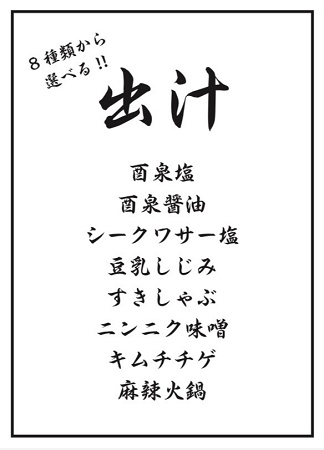 8種類から
選べる!!
出汁
酉泉塩
酉泉醤油
シークワサー塩
豆乳しじみ
すきしゃぶ
ニンニク味噌
キムチチゲ
麻辣火鍋